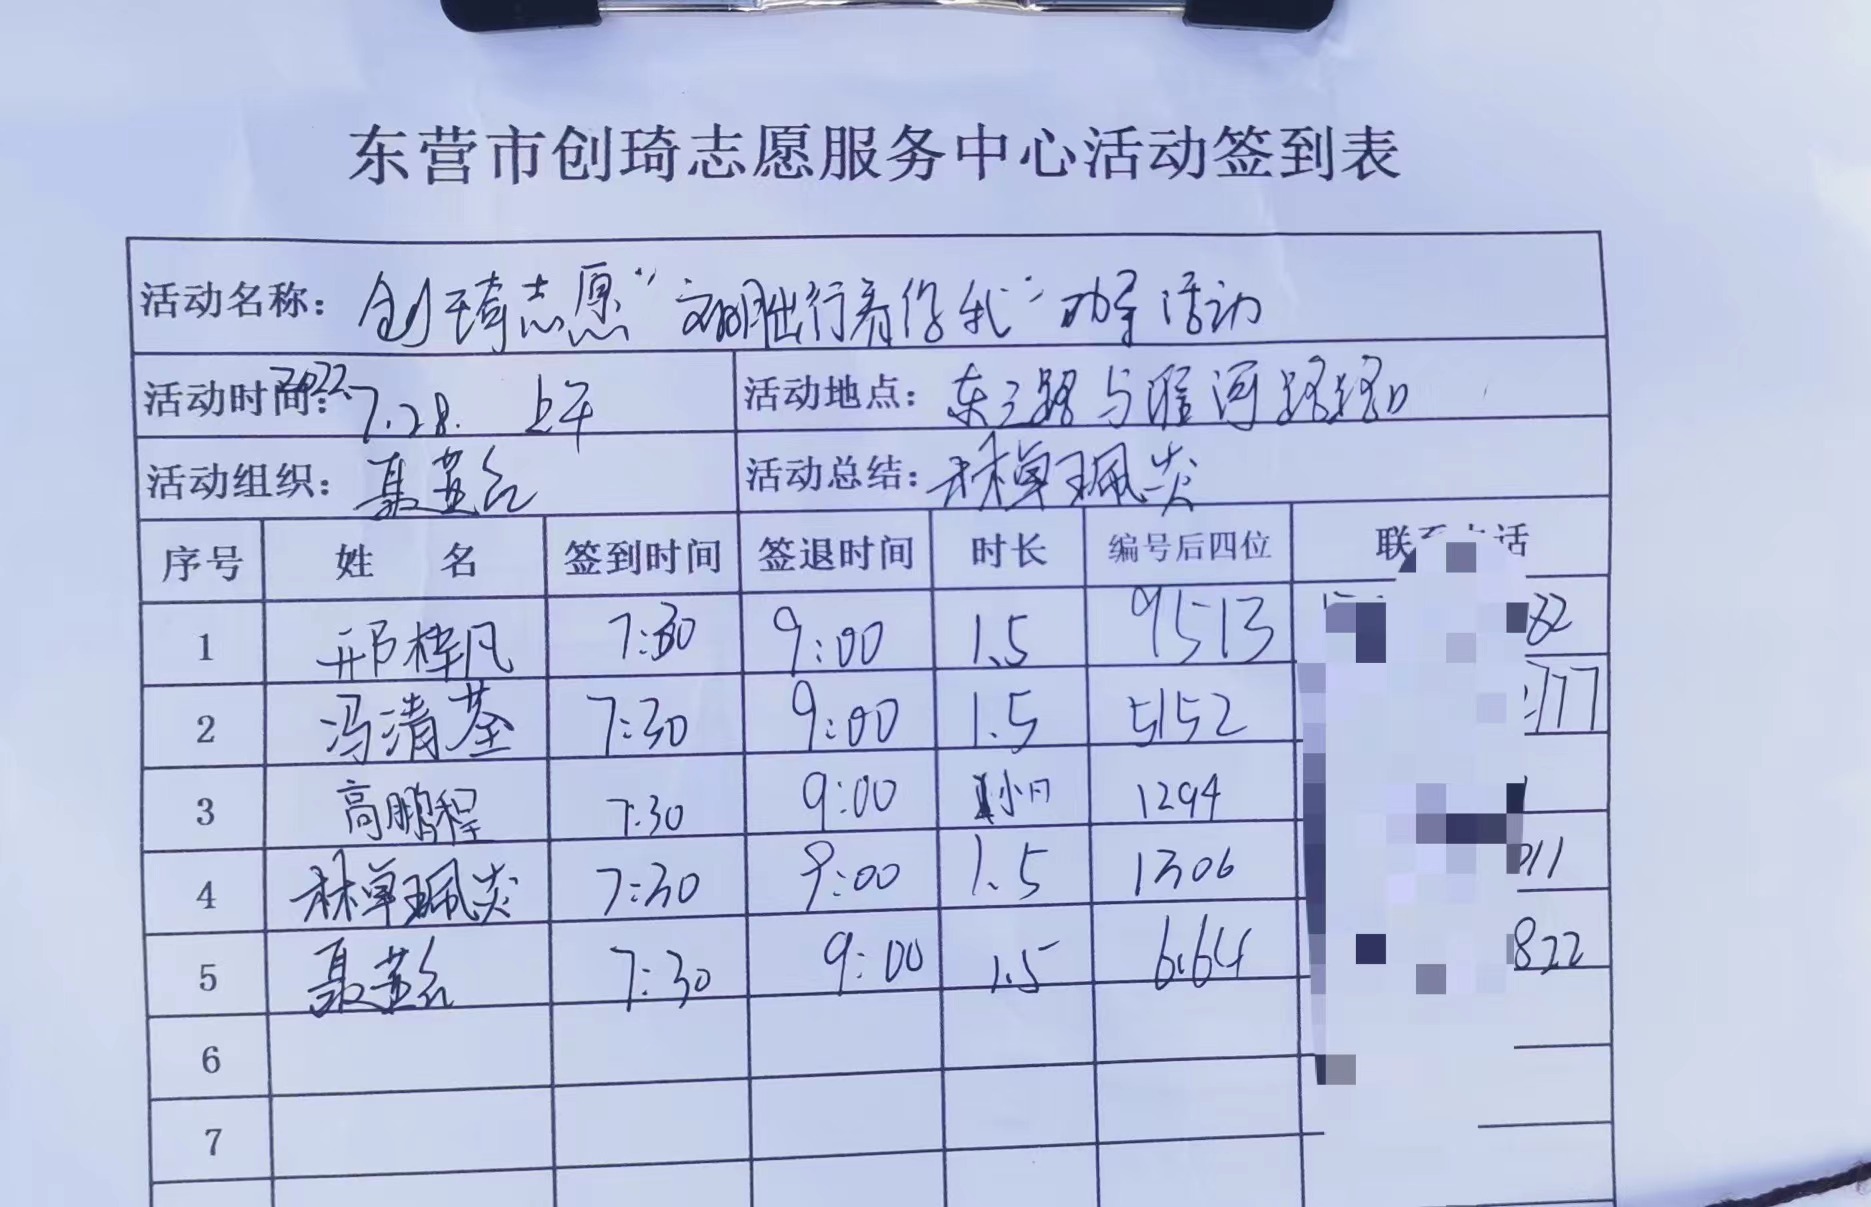 东营市创琦志愿服务中心活动签到表
活动名称: 创琦志愿“文明出行看你我”劝导活动
活动时间: 2022 7.28. 上午 活动地点: 东三路与 河路路口
活动组织: 聂 红 活动总结: 林单珮炎
序号 姓 名 签到时间 签退时间 时长 编号后四位 联系电话
1 邢梓凡 7:30 9:00 1.5 9513 82
2 冯清荃 7:30 9:00 1.5 5152 177
3 高鹏程 7:30 9:00 1294
4 林单珮炎 7:30 9:00 1.5 1306 011
5 聂 红 7:30 9:00 1.5 6.64 822
6
7